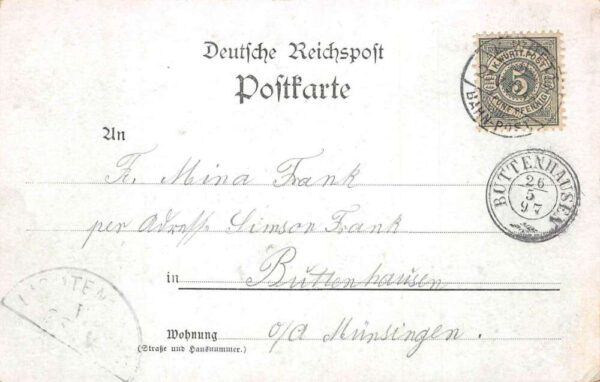 Deutsche Reichspost
Postkarte
K.WÜRTT.POST
5
FÜNF PFENNIG
BAHNPOST
An
Fr. Mina Frank
per Adresse Simson Frank
in Buttenhausen
Wohnung o/a Münsingen.
(Straße und Hausnummer.)
BUTTENHAUSEN
26
5
97